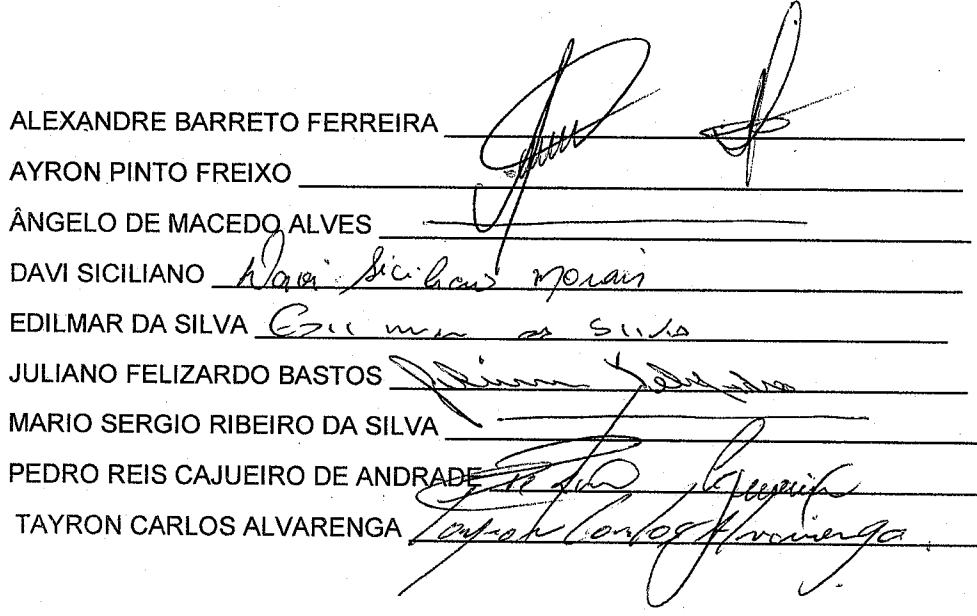 ALEXANDRE BARRETO FERREIRA
AYRON PINTO FREIXO
ÂNGELO DE MACEDO ALVES
DAVI SICILIANO Davi Siciliano Morais
EDILMAR DA SILVA Edilmar da Silva
JULIANO FELIZARDO BASTOS Juliano Felizardo
MARIO SERGIO RIBEIRO DA SILVA
PEDRO REIS CAJUEIRO DE ANDRADE Cajueiro
TAYRON CARLOS ALVARENGA Tayron Carlos Alvarenga